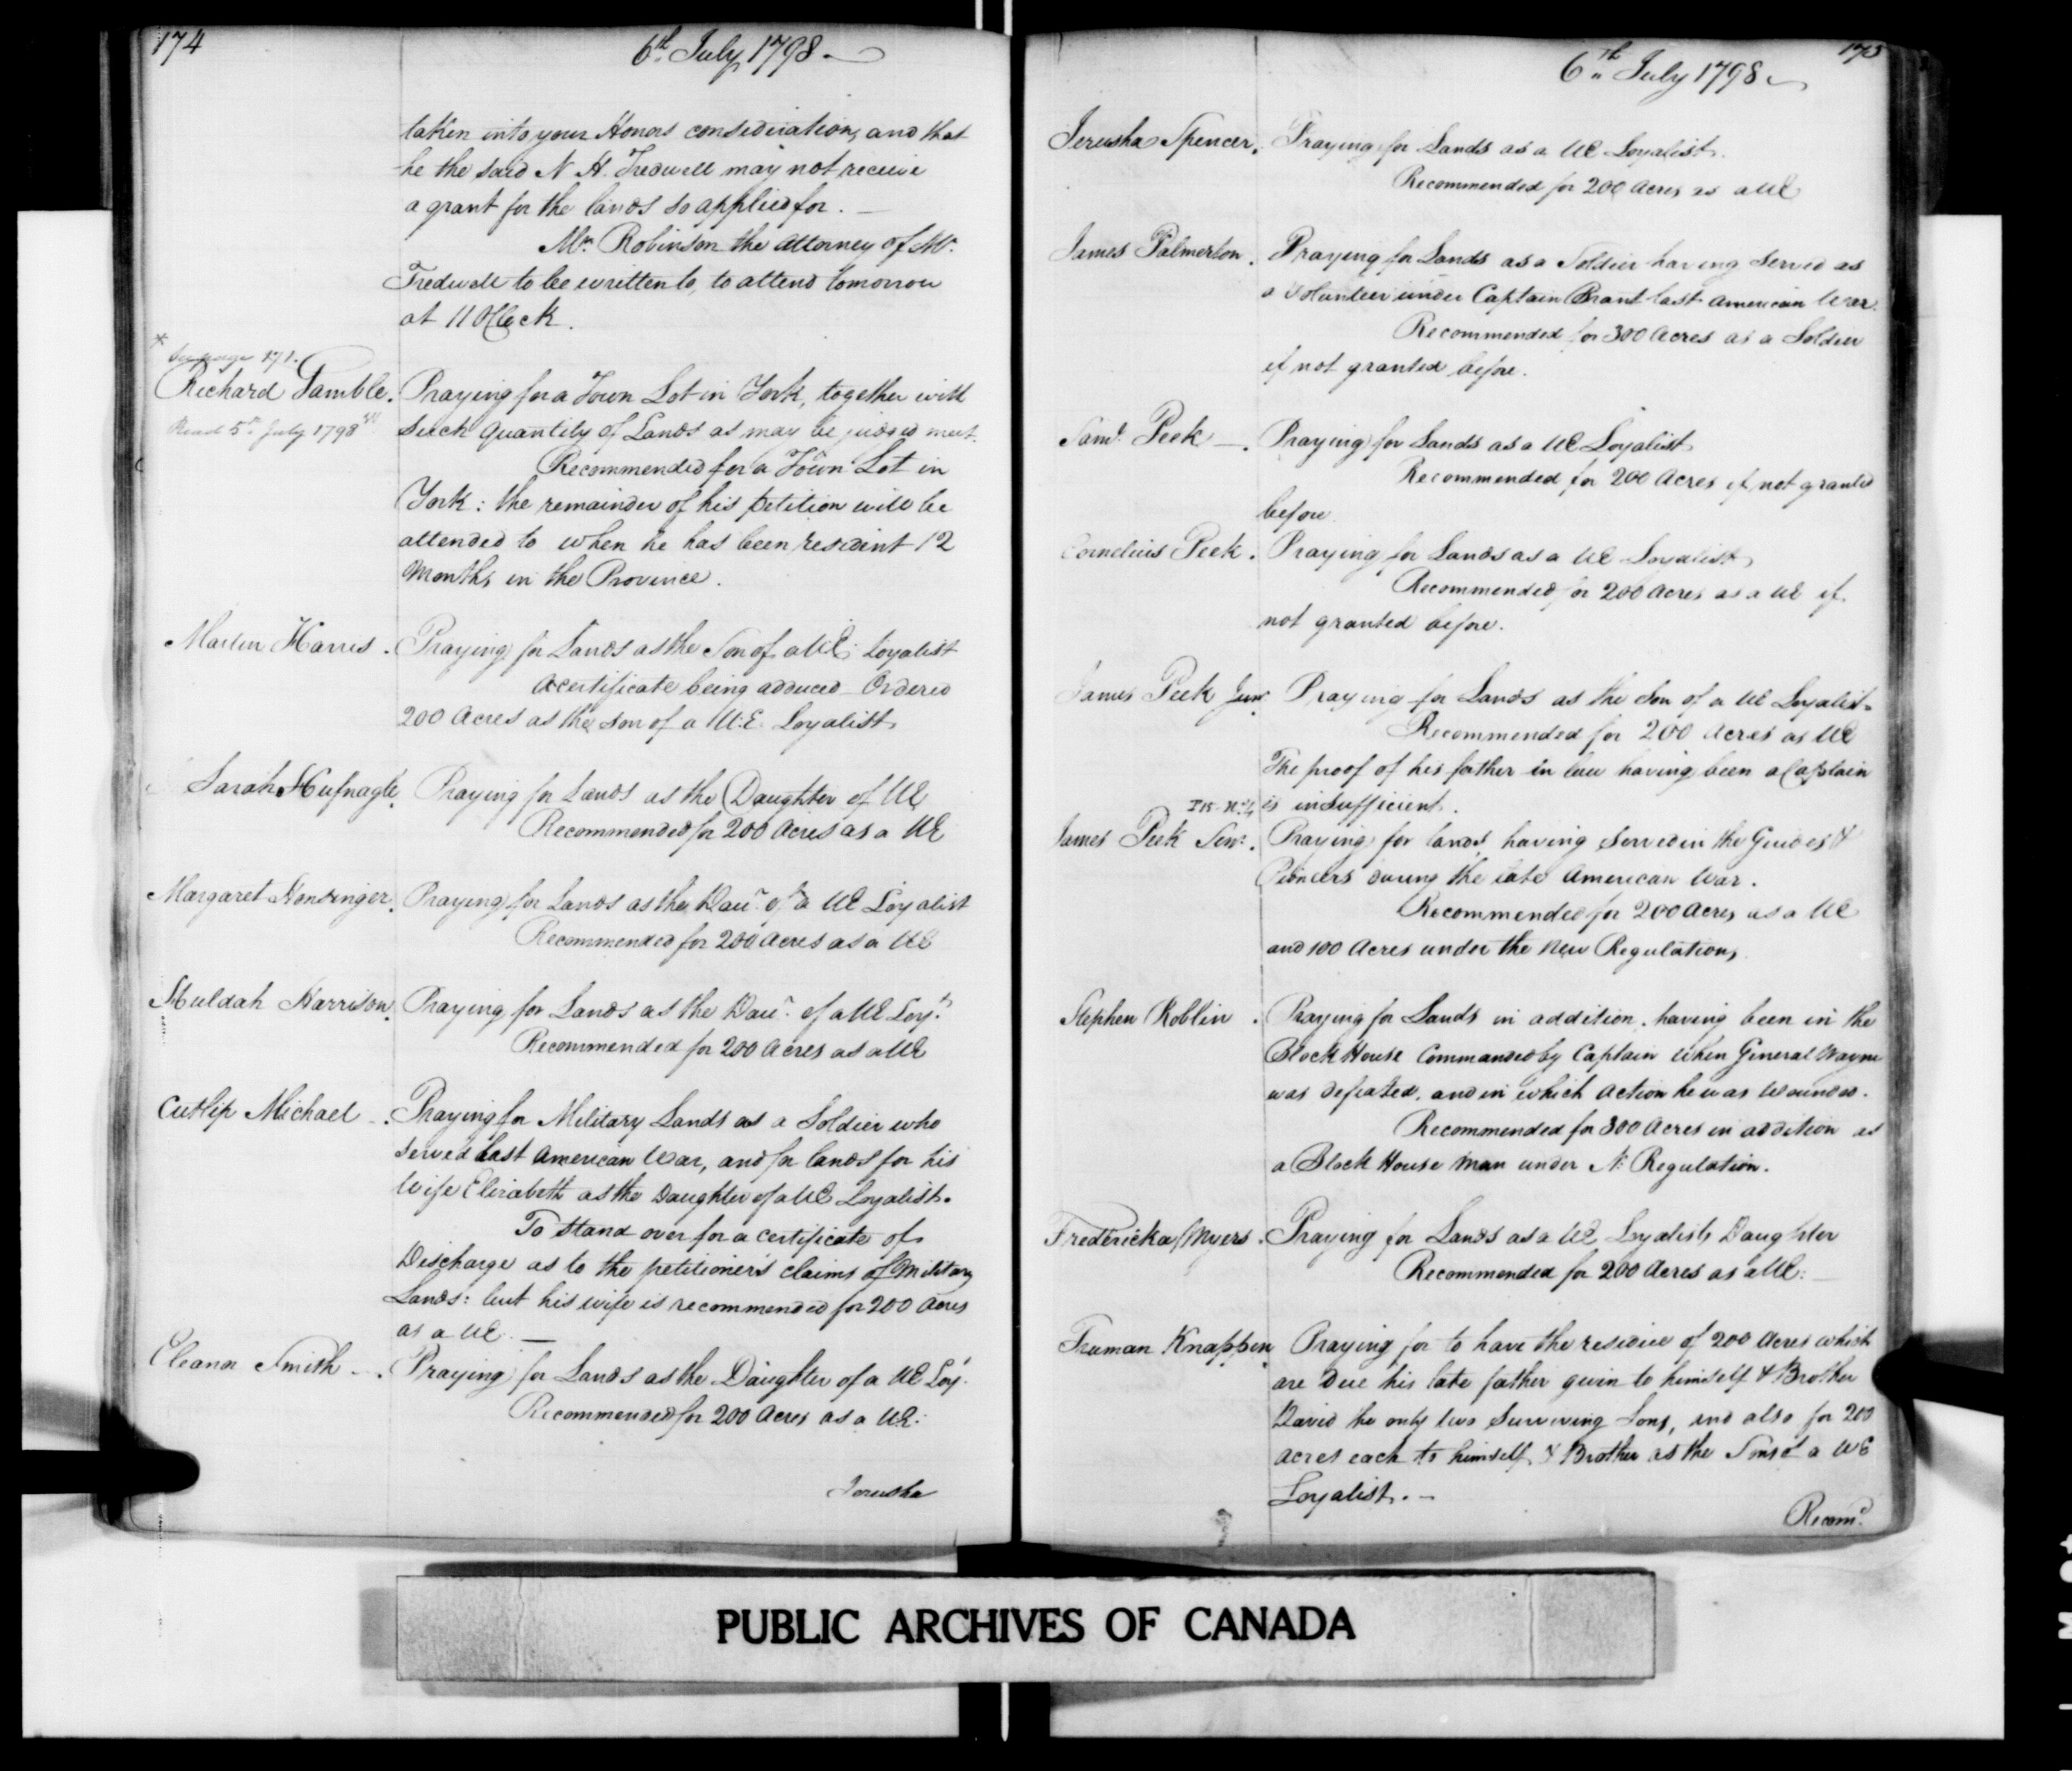 174
6th July 1798
taken into your Honors consideration, and that
he the said N H. Tredwell may not receive
a grant for the lands so applied for.
Mr. Robinson the Attorney of Mr.
Tredwell to be written to, to attend tomorrow
at 11 OClock.
* See page 171.
Richard Gamble. Praying for a Town Lot in York, together with
Read 5th July 1798 such quantity of Lands as may be judged meet.
Recommended for a Town Lot in
York: the remainder of his petition will be
attended to when he has been resident 12
Months in the Province.
Harris. Praying for Lands as the Son of a UE Loyalist
A certificate being adduced Ordered
200 Acres as the son of a U.E. Loyalist
Sarah Hufnagle. Praying for Lands as the Daughter of UE
Recommended for 200 Acres as a UE
Margaret. Praying for Lands as the Daur. of a UE Loyalist
Recommended for 200 Acres as a UE
Huldah Harrison. Praying for Lands as the Daur. of a UE Loyt.
Recommended for 200 Acres as a UE
Cutlip Michael. Praying for Military Lands as a Soldier who
served last American War, and for lands for his
Wife Elizabeth as the Daughter of a UE Loyalist.
To stand over for a certificate of
Discharge as to the petitioner's claims of Military
Lands: but his wife is recommended for 200 Acres
as a UE.
Eleanor Smith. Praying for Lands as the Daughter of a UE Loy.
Recommended for 200 Acres as a UE.
Jerusha
175
6th July 1798
Jerusha Spencer. Praying for Lands as a UE Loyalist.
Recommended for 200 Acres as a UE
James Palmerton. Praying for Lands as a Soldier having served as
a Volunteer under Captain Brant last American War.
Recommended for 300 Acres as a Soldier
if not granted before.
Saml. Peek. Praying for Lands as a UE Loyalist
Recommended for 200 Acres if not granted
before
Cornelius Peek. Praying for Lands as a UE Loyalist
Recommended for 200 Acres as a UE if
not granted before.
James Peek Junr. Praying for Lands as the Son of a UE Loyalist.
Recommended for 200 Acres as UE
The proof of his father in law having been a Captain
is insufficient.
James Peek Senr. Praying for lands having served in the Guides &
Pioneers during the late American War.
Recommended for 200 Acres as a UE
and 100 Acres under the New Regulations
Stephen Roblin. Praying for Lands in addition, having been in the
Block House Commanded by Captain when General Wayne
was defeated, and in which Action he was Wounded.
Recommended for 300 Acres in addition as
a Block House Man under N. Regulation.
Fredericka Myers. Praying for Lands as a UE Loyalists Daughter
Recommended for 200 Acres as a UE.
Truman Knappen. Praying for to have the residue of 200 Acres which
are due his late father given to himself & Brother
David the only two surviving Sons, and also for 200
acres each to himself & Brother as the Sons of a UE
Loyalist.
Recomd.
PUBLIC ARCHIVES OF CANADA